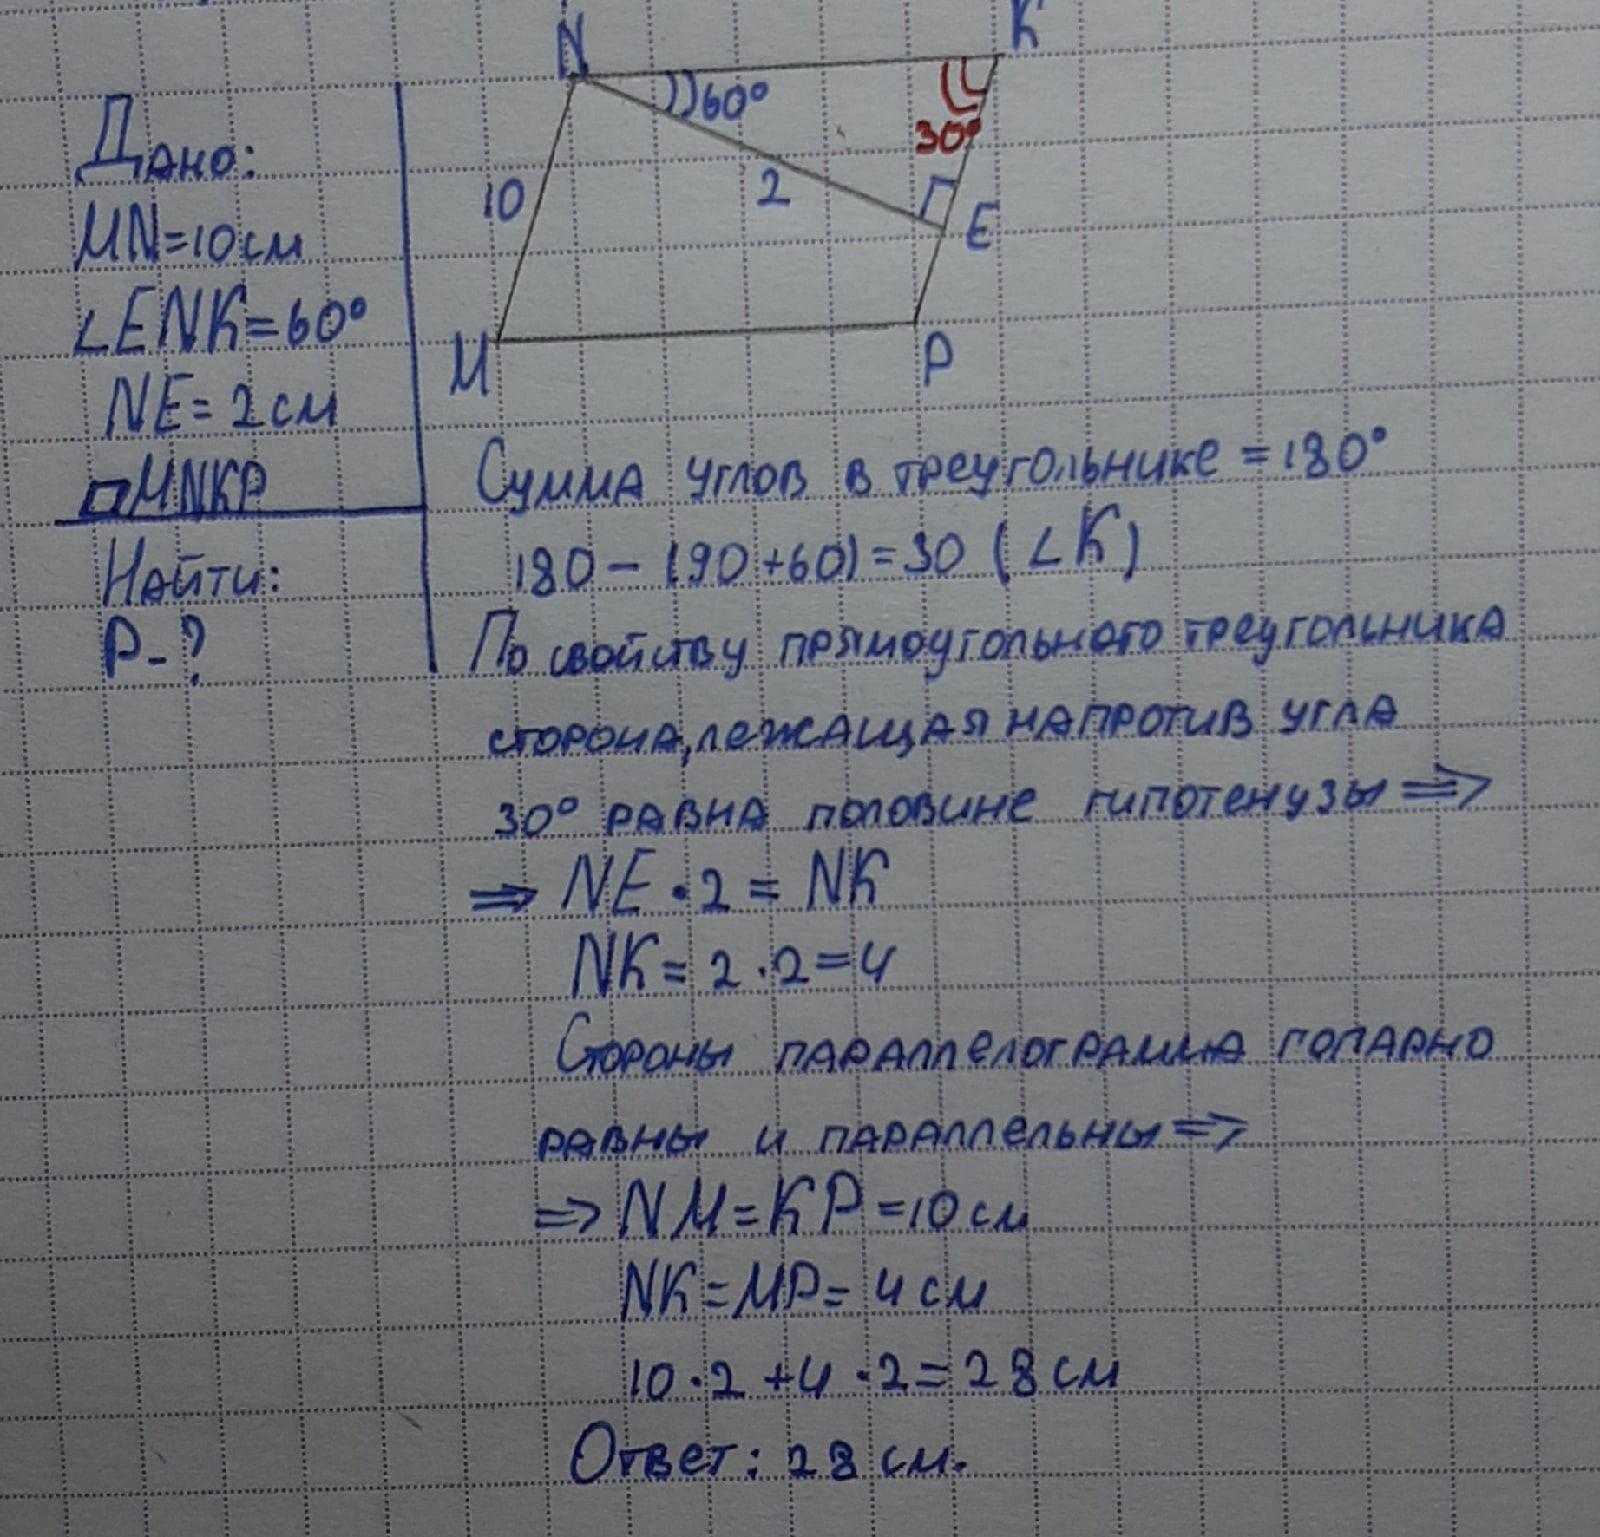 N
K
60°
30°
10
2
E
M
P
Дано:
MN=10см
∠ENK=60°
NE=2см
▱MNKP
Найти:
P-?
Сумма углов в треугольнике =180°
180-(90+60)=30 (∠K)
По свойству прямоугольного треугольника
сторона, лежащая напротив угла
30° равна половине гипотенузы ⇒
⇒ NE·2=NK
NK=2·2=4
Стороны параллелограмма попарно
равны и параллельны ⇒
⇒ NM=KP=10см
NK=MP=4см
10·2+4·2=28см
Ответ: 28 см.